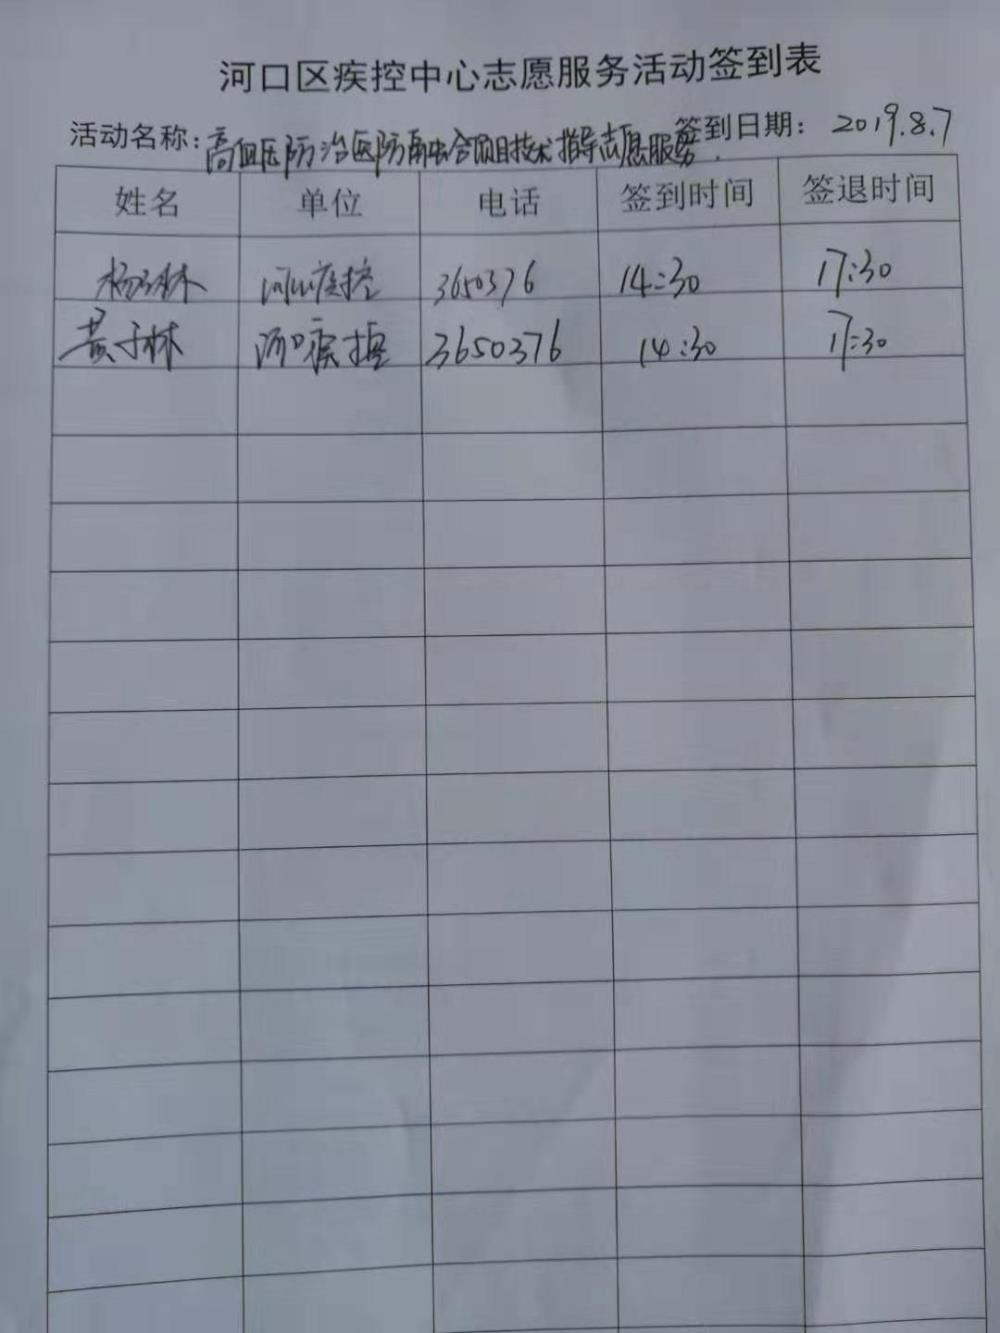 河口区疾控中心志愿服务活动签到表
活动名称：高血压防治医防融合项目技术指导志愿服务. 签到日期：2019.8.7
姓名 单位 电话 签到时间 签退时间
河口疾控 3650376 14:30 17:30
黄子林 河口疾控 3650376 14:30 17:30